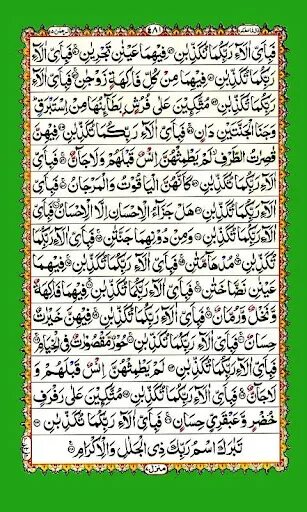 ٤٨١
فَبِاَىِّ اٰلَآءِ رَبِّكُمَا تُكَذِّبٰنِ۝ فِيْهِمَا عَيْنٰنِ تَجْرِيٰنِ۝ فَبِاَىِّ اٰلَآءِ
رَبِّكُمَا تُكَذِّبٰنِ۝ فِيْهِمَا مِنْ كُلِّ فَاكِهَةٍ زَوْجٰنِ۝ فَبِاَىِّ اٰلَآءِ
رَبِّكُمَا تُكَذِّبٰنِ۝ مُتَّكِـِٕيْنَ عَلٰى فُرُشٍ بَطَآئِنُهَا مِنْ اِسْتَبْرَقٍ
وَجَنَا الْجَنَّتَيْنِ دَانٍ۝ فَبِاَىِّ اٰلَآءِ رَبِّكُمَا تُكَذِّبٰنِ۝ فِيْهِنَّ
قٰصِرٰتُ الطَّرْفِ لَمْ يَطْمِثْهُنَّ اِنْسٌ قَبْلَهُمْ وَلَا جَآنٌّ۝ فَبِاَىِّ
اٰلَآءِ رَبِّكُمَا تُكَذِّبٰنِ۝ كَاَنَّهُنَّ الْيَاقُوْتُ وَالْمَرْجَانُ۝ فَبِاَىِّ اٰلَآءِ
رَبِّكُمَا تُكَذِّبٰنِ۝ هَلْ جَزَآءُ الْاِحْسَانِ اِلَّا الْاِحْسَانُ۝ فَبِاَىِّ
اٰلَآءِ رَبِّكُمَا تُكَذِّبٰنِ۝ وَمِنْ دُوْنِهِمَا جَنَّتٰنِ۝ فَبِاَىِّ اٰلَآءِ رَبِّكُمَا
تُكَذِّبٰنِ۝ مُدْهَآمَّتٰنِ۝ فَبِاَىِّ اٰلَآءِ رَبِّكُمَا تُكَذِّبٰنِ۝ فِيْهِمَا
عَيْنٰنِ نَضَّاخَتٰنِ۝ فَبِاَىِّ اٰلَآءِ رَبِّكُمَا تُكَذِّبٰنِ۝ فِيْهِمَا فَاكِهَةٌ
وَّنَخْلٌ وَّرُمَّانٌ۝ فَبِاَىِّ اٰلَآءِ رَبِّكُمَا تُكَذِّبٰنِ۝ فِيْهِنَّ خَيْرٰتٌ
حِسَانٌ۝ فَبِاَىِّ اٰلَآءِ رَبِّكُمَا تُكَذِّبٰنِ۝ حُوْرٌ مَّقْصُوْرٰتٌ فِى الْخِيَامِ۝
فَبِاَىِّ اٰلَآءِ رَبِّكُمَا تُكَذِّبٰنِ۝ لَمْ يَطْمِثْهُنَّ اِنْسٌ قَبْلَهُمْ وَ
لَا جَآنٌّ۝ فَبِاَىِّ اٰلَآءِ رَبِّكُمَا تُكَذِّبٰنِ۝ مُتَّكِـِٕيْنَ عَلٰى رَفْرَفٍ
خُضْرٍ وَّعَبْقَرِىٍّ حِسَانٍ۝ فَبِاَىِّ اٰلَآءِ رَبِّكُمَا تُكَذِّبٰنِ۝
تَبٰرَكَ اسْمُ رَبِّكَ ذِى الْجَلٰلِ وَالْاِكْرَامِ۝